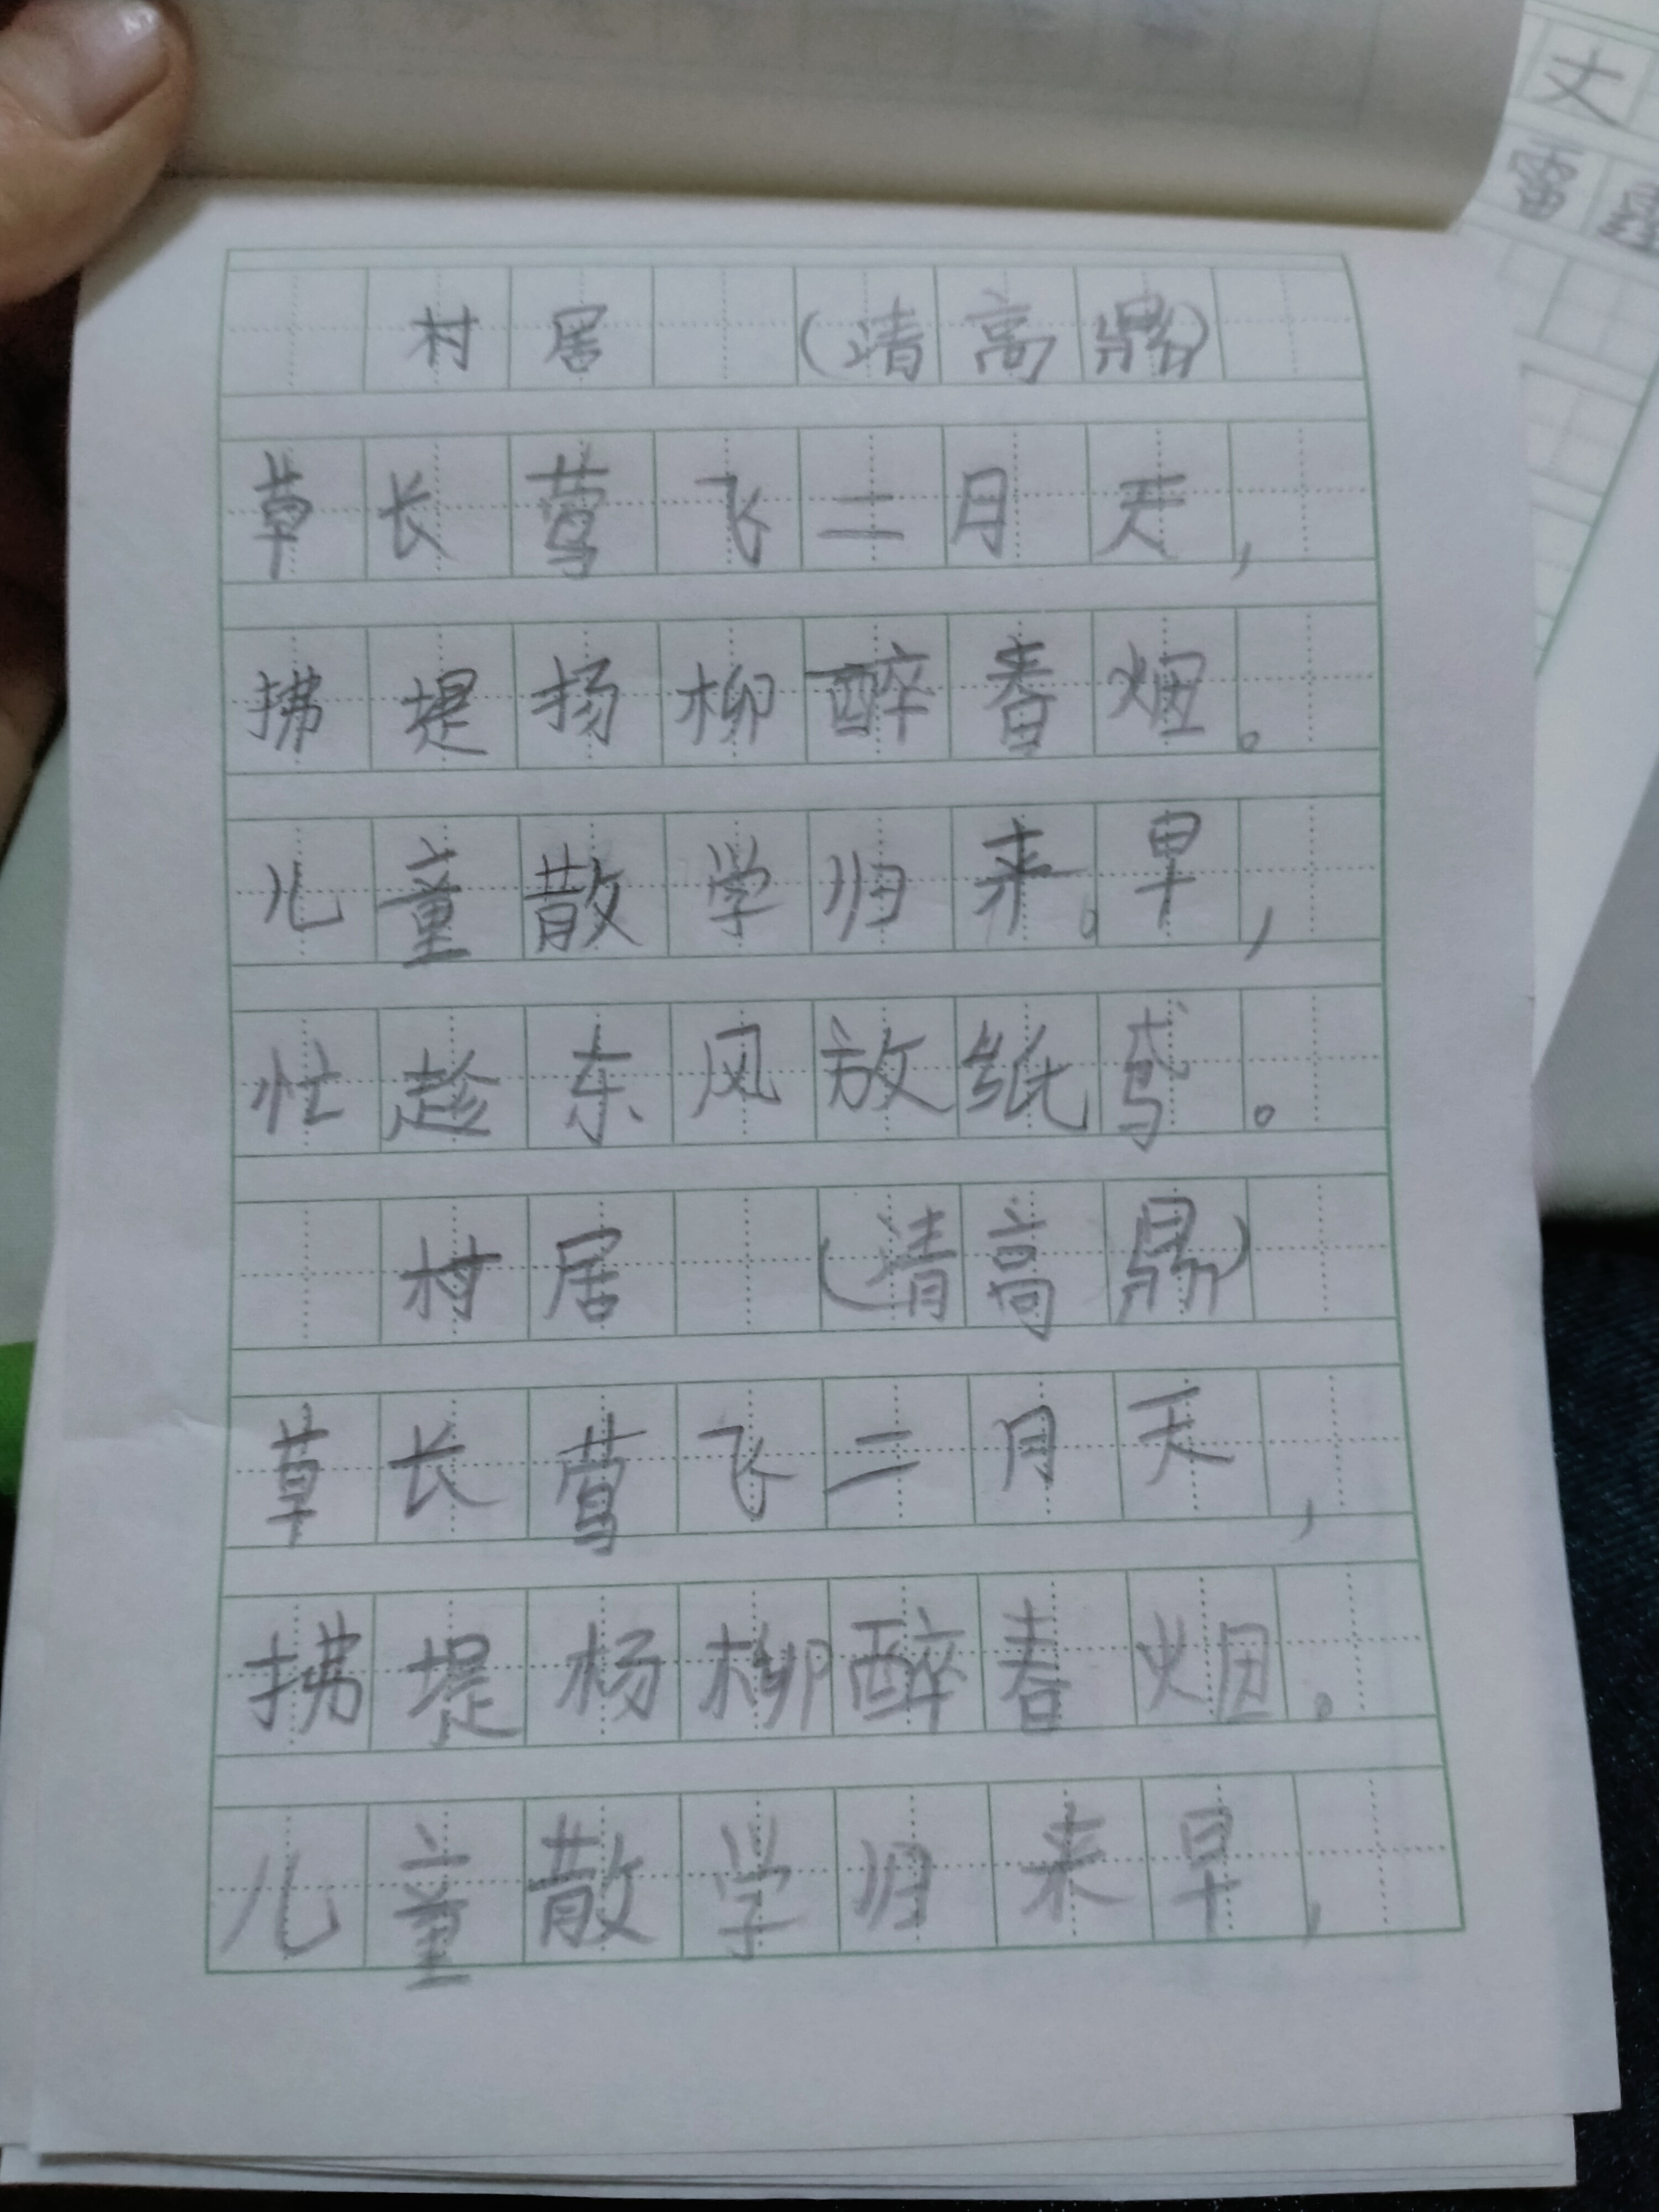 村居 (清高鼎)
草长莺飞二月天,
拂堤扬柳醉春烟。
儿童散学归来。早,
忙趁东风放纸鸢。
村居 (清高鼎)
草长莺飞二月天,
拂堤杨柳醉春烟。
儿童散学归来早,
丈
雷